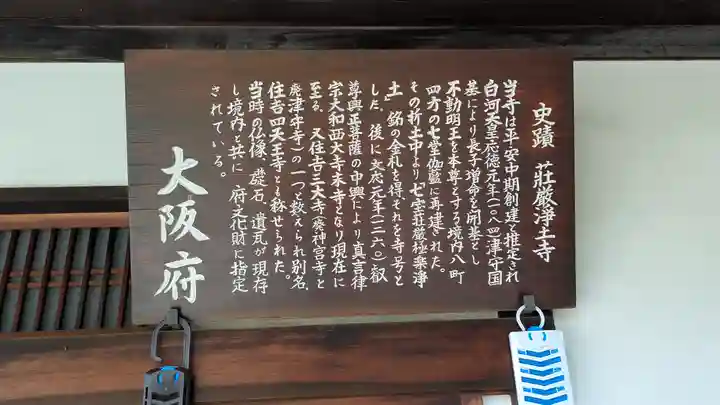 史蹟 荘厳浄土寺
当寺は平安中期創建と推定され
白河天皇応徳元年(一〇八四)津守国
基により長子増命を開基とし
不動明王を本尊とする境内八町
四方の七堂伽藍に再建された。
その折土中より「七宝荘厳極楽浄
土」銘の金札を得それを寺号と
した。後に文応元年(一二六〇)叡
尊興正菩薩の中興により真言律
宗大和西大寺末寺となり現在に
至る。又住吉三大寺(廃神宮寺と
廃津守寺)の一つと数えられ別名
住吉四天王寺とも称せられた。
当時の仏像、礎石、遺瓦が現存
し境内と共に府文化財に指定
されている。
大阪府